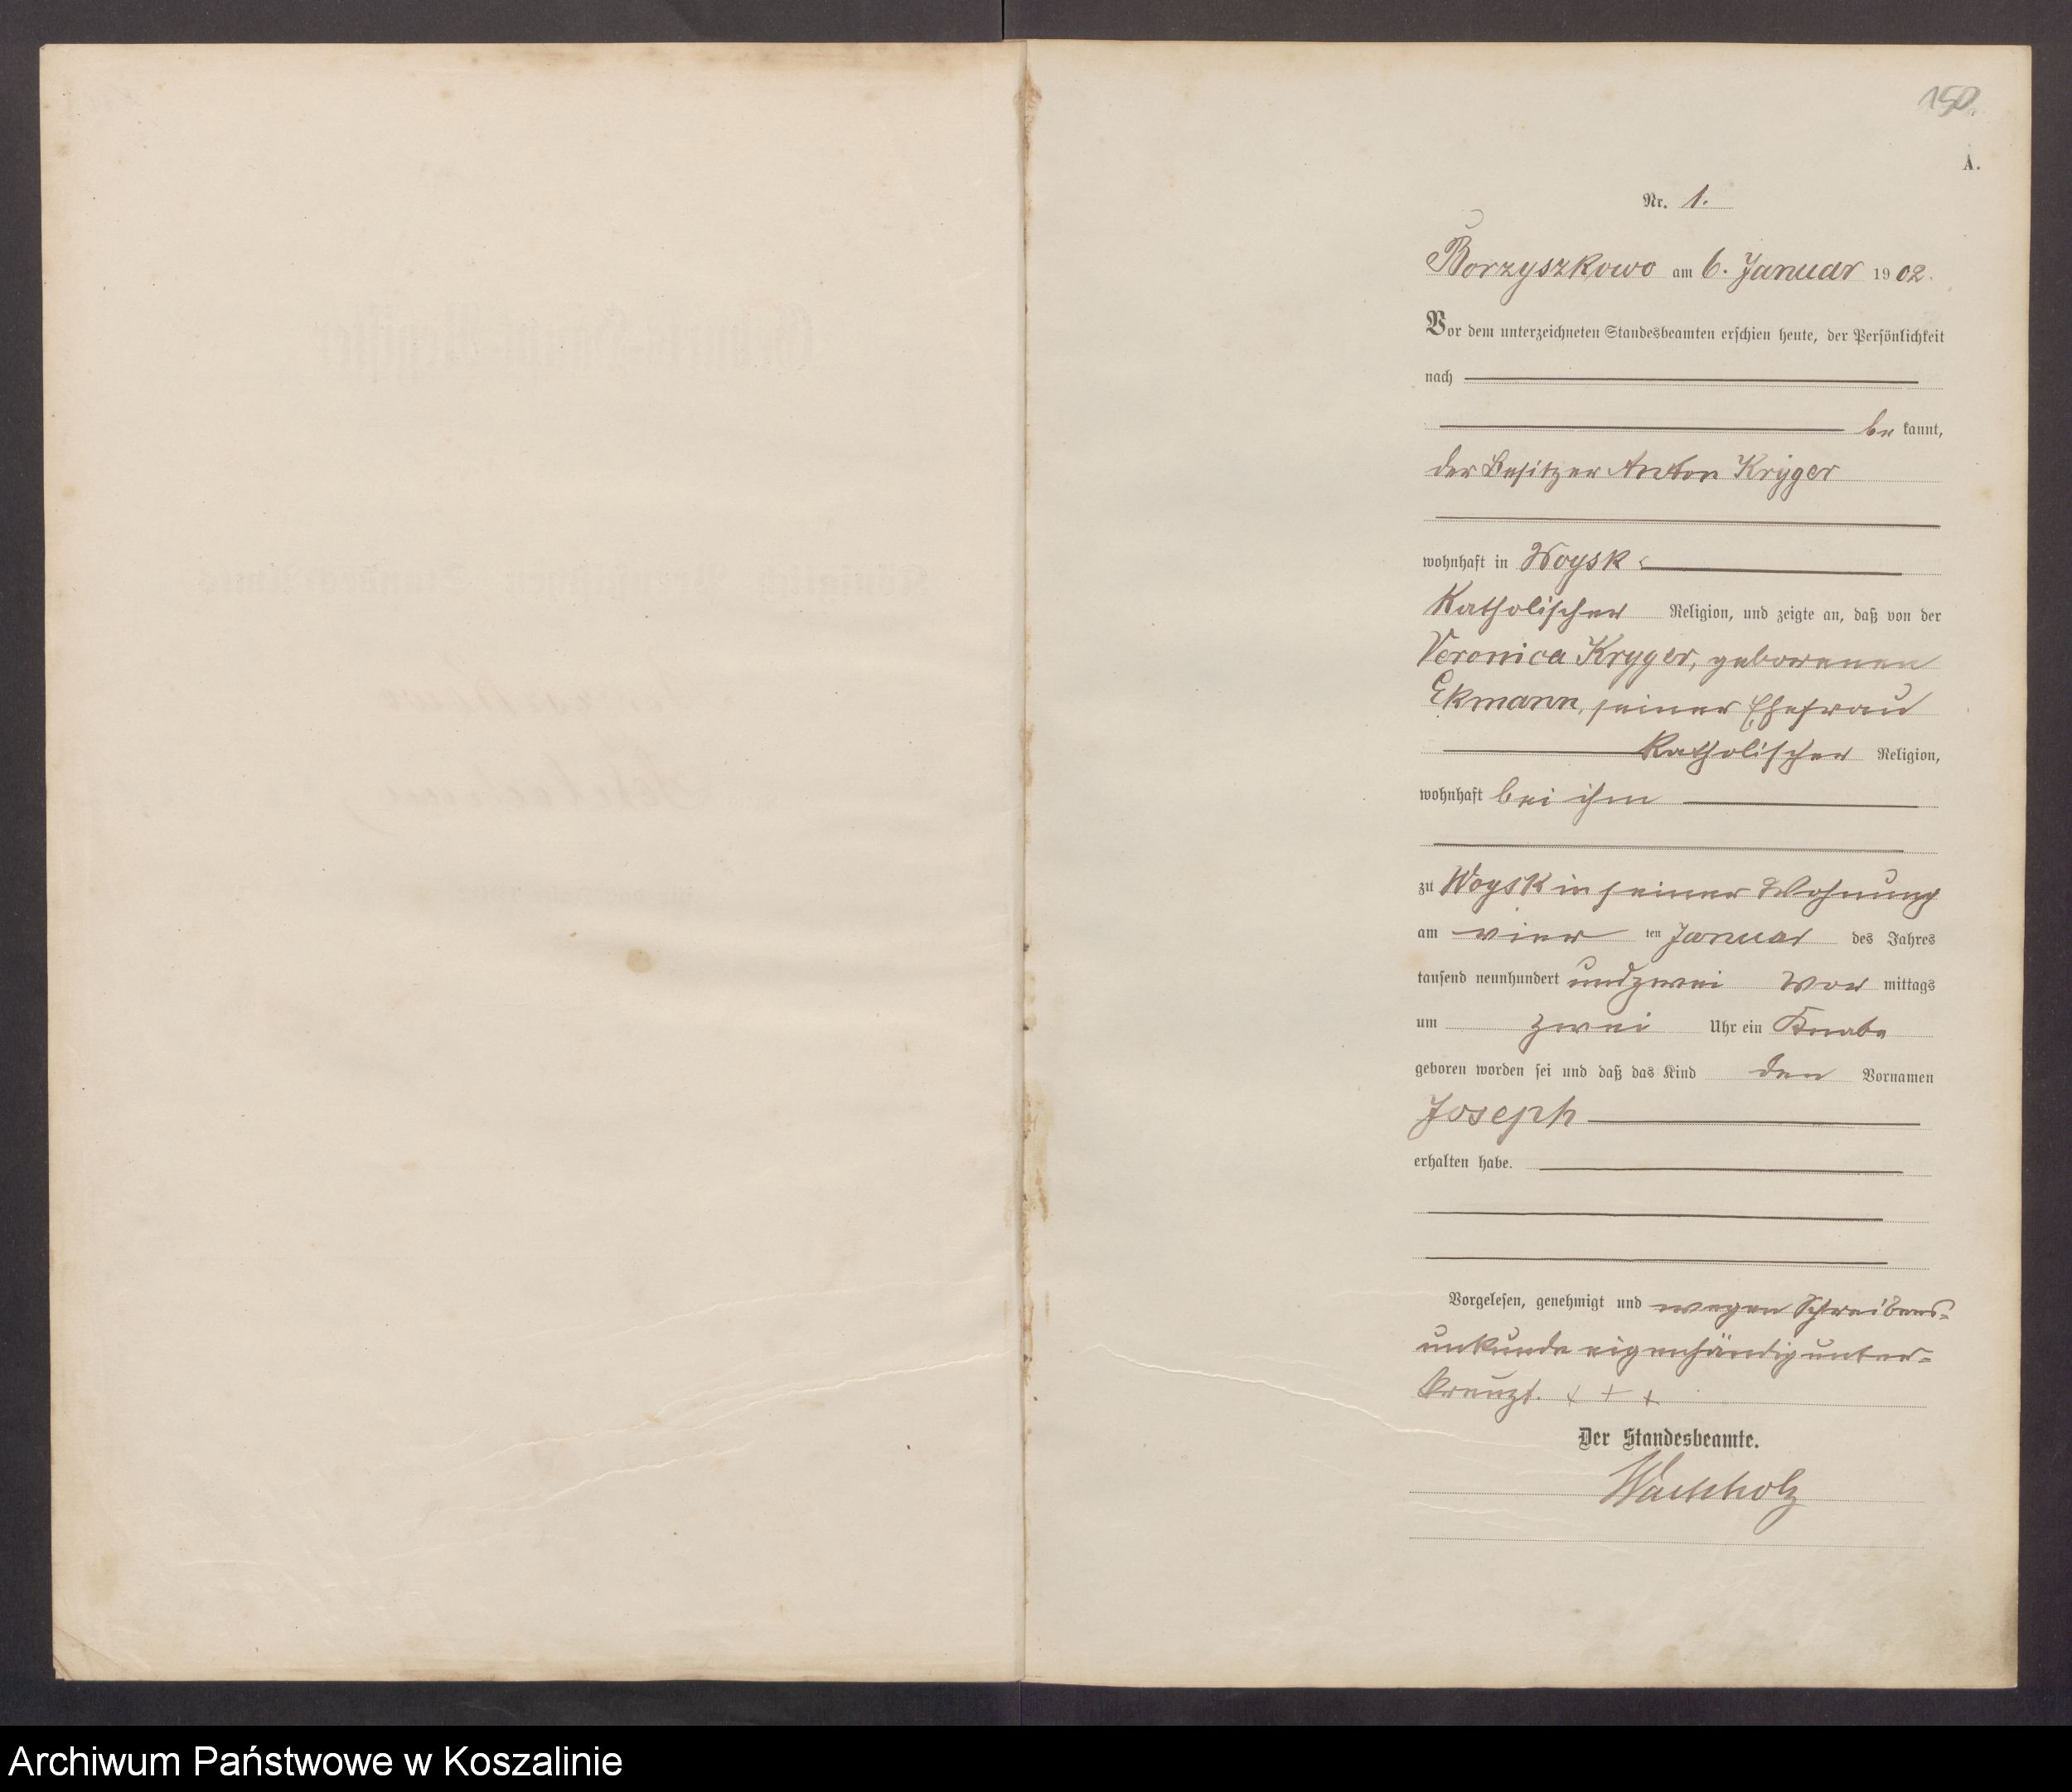 150.
A.
Nr. 1.
Borzyszkowo am 6. Januar 1902.
Vor dem unterzeichneten Standesbeamten erschien heute, der Persönlichkeit
nach
be kannt,
der Besitzer Anton Kryger
wohnhaft in Woysk
Katholischer Religion, und zeigte an, daß von der
Veronica Kryger, geborenen
Ekmann, seiner Ehefrau
Katholischer Religion,
wohnhaft bei ihm
zu Woysk in seiner Wohnung
am vier ten Januar des Jahres
tausend neunhundert undzwei Vor mittags
um zwei Uhr ein Knabe
geboren worden sei und daß das Kind den Vornamen
Joseph
erhalten habe.
Vorgelesen, genehmigt und wegen Schreibens-
unkunde eigenhändig unter-
kreuzt. + + +
Der Standesbeamte.
Wachholz
Archiwum Państwowe w Koszalinie